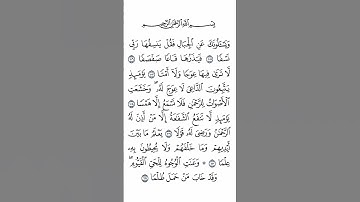 بِسْمِ ٱللَّهِ ٱلرَّحْمَٰنِ ٱلرَّحِيمِ
وَيَسْـَٔلُونَكَ عَنِ ٱلْجِبَالِ فَقُلْ يَنسِفُهَا رَبِّى
نَسْفًا ۝١٠٥ فَيَذَرُهَا قَاعًا صَفْصَفًا ۝١٠٦
لَّا تَرَىٰ فِيهَا عِوَجًا وَلَآ أَمْتًا ۝١٠٧ يَوْمَئِذٍ
يَتَّبِعُونَ ٱلدَّاعِىَ لَا عِوَجَ لَهُۥ ۖ وَخَشَعَتِ
ٱلْأَصْوَاتُ لِلرَّحْمَٰنِ فَلَا تَسْمَعُ إِلَّا هَمْسًا ۝١٠٨
يَوْمَئِذٍ لَّا تَنفَعُ ٱلشَّفَٰعَةُ إِلَّا مَنْ أَذِنَ لَهُ
ٱلرَّحْمَٰنُ وَرَضِىَ لَهُۥ قَوْلًا ۝١٠٩ يَعْلَمُ مَا بَيْنَ
أَيْدِيهِمْ وَمَا خَلْفَهُمْ وَلَا يُحِيطُونَ بِهِۦ
عِلْمًا ۝١١٠ ۞ وَعَنَتِ ٱلْوُجُوهُ لِلْحَىِّ ٱلْقَيُّومِ ۖ
وَقَدْ خَابَ مَنْ حَمَلَ ظُلْمًا ۝١١١